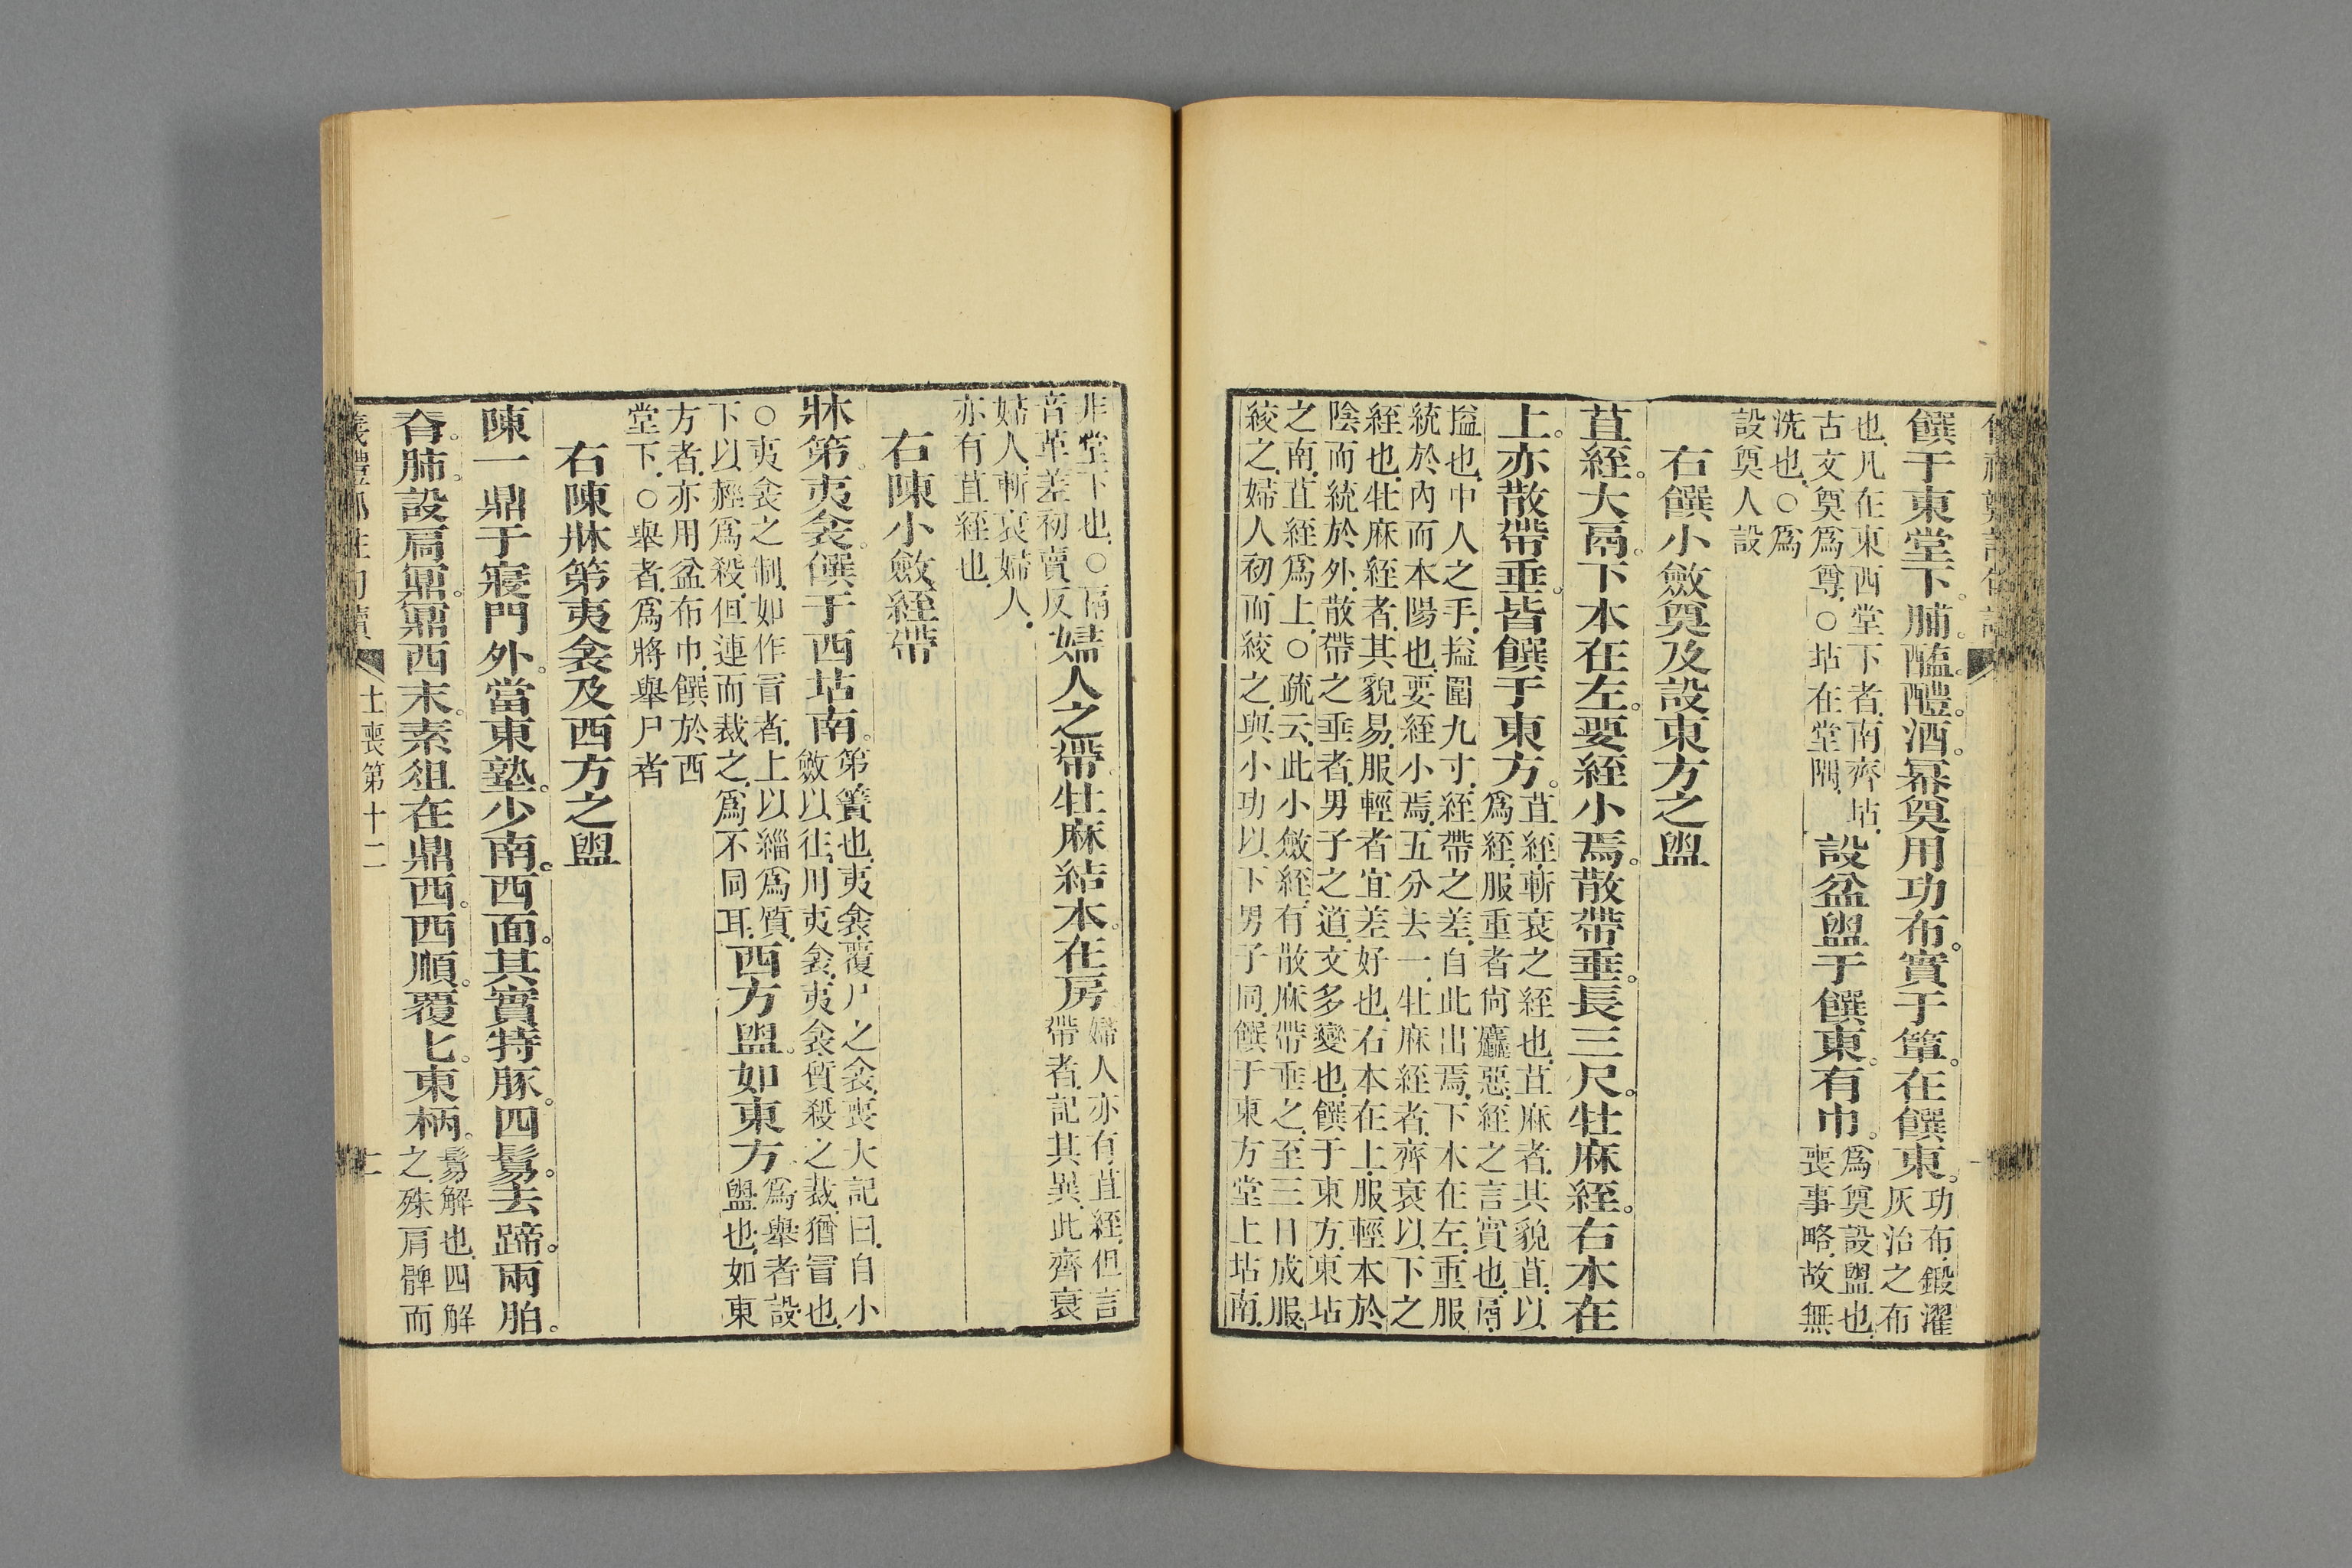 饌于東堂下。脯。醢。醴。酒。冪奠用功布。實于簞。在饌東。功布。鍛濯灰治之布
也。凡在東西堂下者。南齊坫。古文奠爲尊。○坫在堂隅。設盆盥于饌東。有巾。爲奠設盥也。喪事略。故無
洗也。○爲設奠人設
右饌小斂奠及設東方之盥
苴絰。大鬲。下本在左。要絰小焉。散帶垂。長三尺。牡麻絰。右本在
上。亦散帶垂。皆饌于東方。苴絰。斬衰之絰也。苴麻者。其貌苴。以爲絰。服重者尚麤惡。絰之言實也。鬲。
搤也。中人之手。搤圍九寸。絰帶之差。自此出焉。下本在左。重服統於內而本陽也。要絰小焉。五分去一。牡麻絰者。齊衰以下之
絰也。牡麻絰者。其貌易。服輕者宜差好也。右本在上。服輕本於陰而統於外。散帶之垂者。男子之道。文多變也。饌于東方。東坫
之南。苴絰爲上。○疏云。此小斂絰。有散麻帶垂之。至三日成服絞之。婦人初而絞之。與小功以下男子同。饌于東方。堂上坫南。
非堂下也。○鬲音革差初賣反婦人之帶。牡麻結本。在房婦人亦有苴絰。但言帶者。記其異。此齊衰
婦人斬衰婦人。亦有苴絰也。
右陳小斂絰帶
牀第。夷衾。饌于西坫南。第。簀也。夷衾。覆尸之衾。喪大記曰。自小斂以往。用夷衾。夷衾。質殺之裁。猶冒也。
○夷衾之制。如作冒者。上以緇爲質。下以䞓爲殺。但連而裁之。爲不同耳。西方盥。如東方。爲舉者設盥也。如東
方者。亦用盆布巾。饌於西堂下。○舉者。爲將舉尸者
右陳牀第夷衾及西方之盥
陳一鼎于寢門外。當東塾。少南。西面。其實特豚。四鬄。去蹄。兩胉。
脊。肺。設扃鼏。鼏西末。素俎在鼎西。西順。覆匕。東柄。鬄。解也。四解之。殊肩髀而
士喪第十二